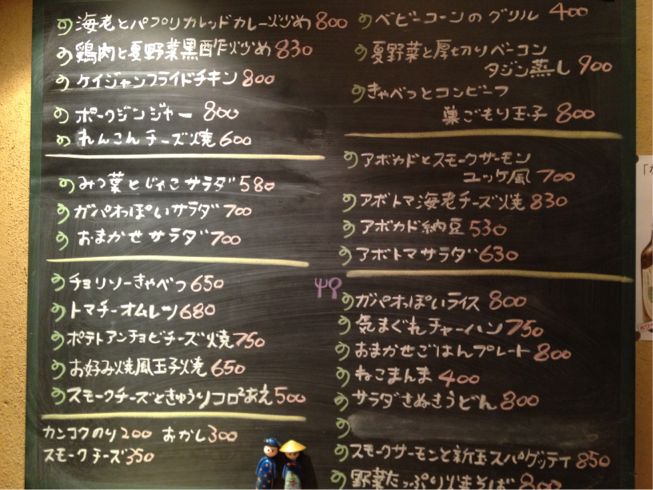 海老とパプリカレッドカレー炒め 800
鶏肉と夏野菜黒酢炒め 830
ケイジャンフライドチキン 800
ポークジンジャー 800
れんこんチーズ焼 600
みつ葉とじゃこサラダ 580
ガパオっぽいサラダ 700
おまかせサラダ 700
チョリソーきゃべつ 650
トマチーオムレツ 680
ポテトアンチョビチーズ焼 750
お好み焼風玉子焼 650
スモークチーズときゅうりコロコロあえ 500
カンコクのり 200 おかし 300
スモークチーズ 350
ベビーコーンのグリル 400
夏野菜と厚切りベーコン
タジン蒸し 900
きゃべっとコンビーフ
巣ごもり玉子 800
アボカドとスモークサーモン
ユッケ風 700
アボトマ海老チーズ焼 830
アボカド納豆 530
アボトマサラダ 630
ガパオっぽいライス 800
気まぐれチャーハン 750
おまかせごはんプレート 800
ねこまんま 400
サラダさぬきうどん 800
スモークサーモンと新玉スパゲッティ 850
野菜たっぷり焼そば 800